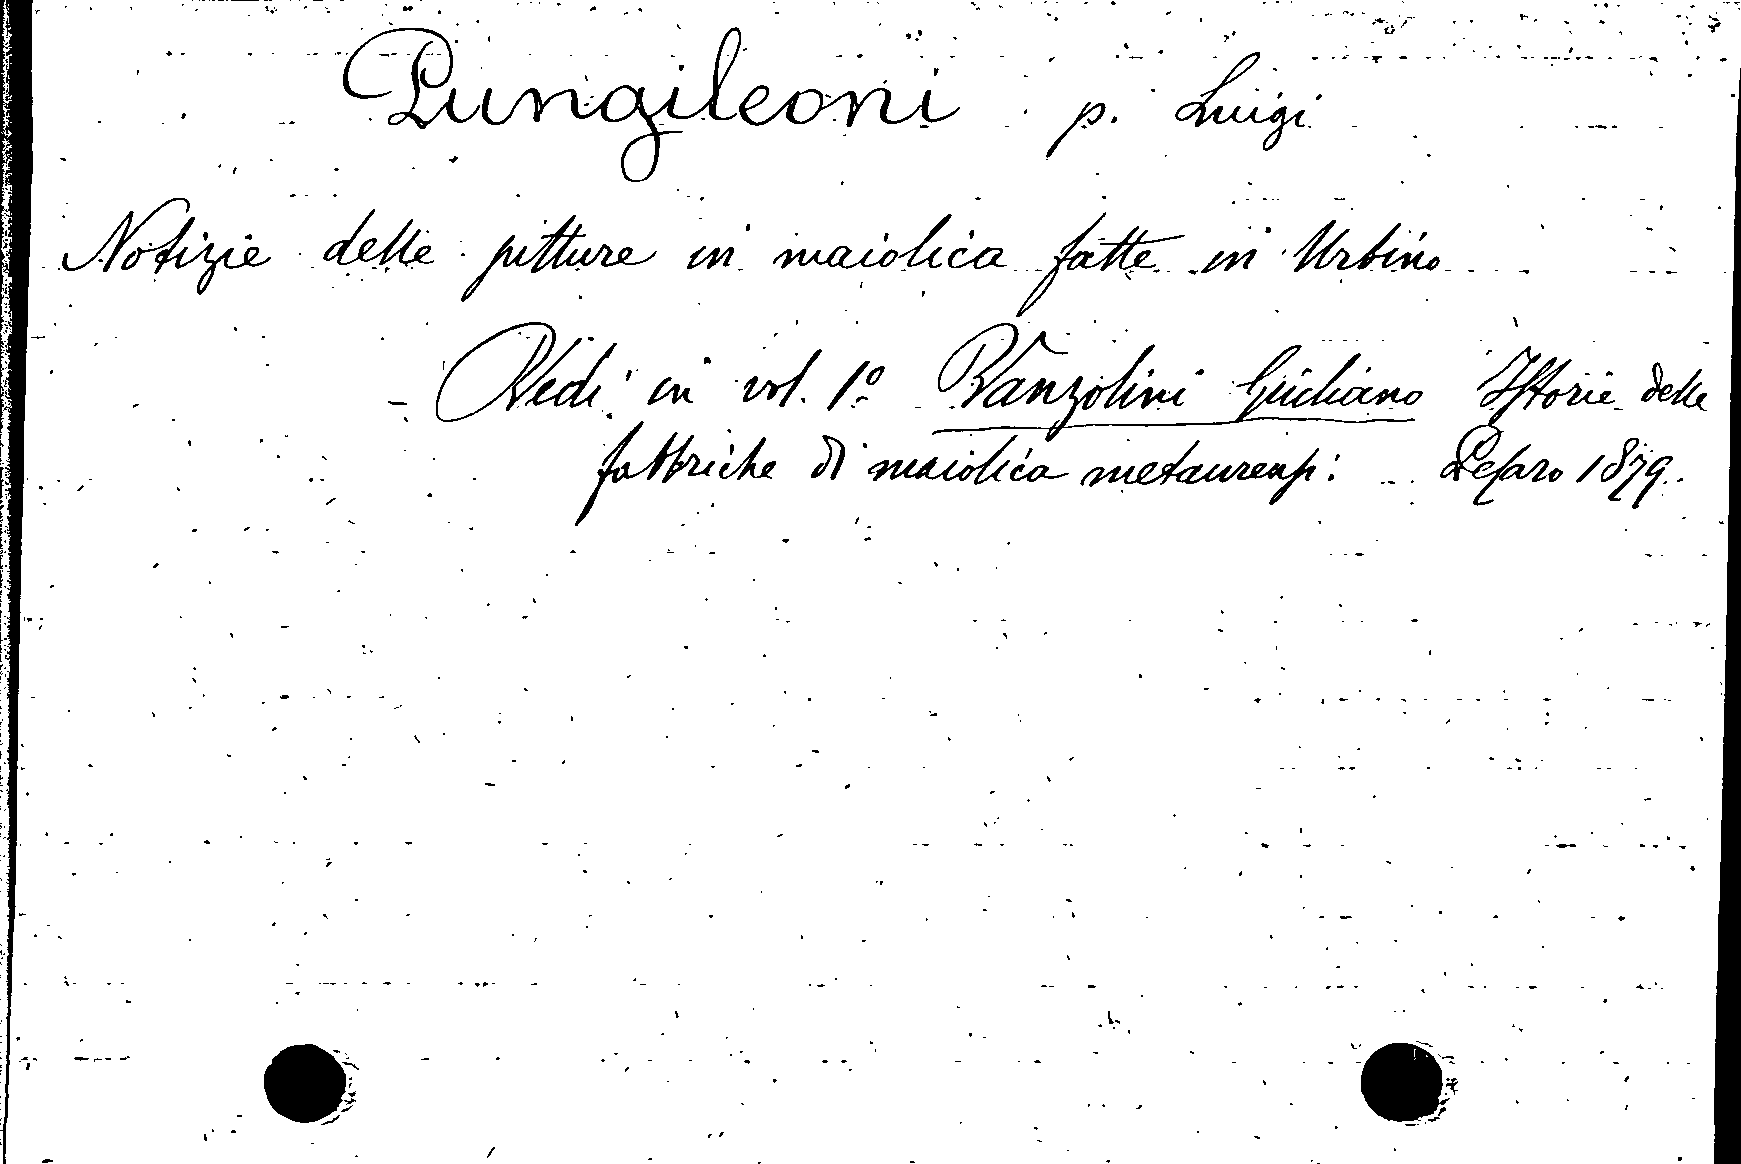 Pungileoni p. Luigi
Notizie delle pitture in maiolica fatte in Urbino
- Vedi in vol. 1º Vanzolini Giuliano Istorie delle
fabbriche di maiolica metaurensi: Pesaro 1879.